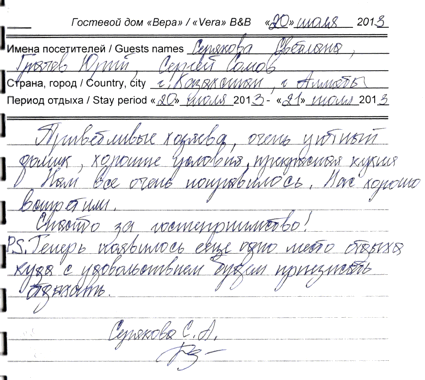 Гостевой дом «Вера» / «Vera» B&B «20» июля 2013
Имена посетителей / Guests names Сурякова Светлана,
Юрий Сергей Сомов
Страна, город / Country, city г. Казахстан, г. Алматы
Период отдыха / Stay period «20» июля 2013 - «21» июля 2013
Приветливые хозяева, очень уютный
домик, хорошие условия, прекрасная кухня
Нам все очень понравилось. Нас хорошо
встретили.
Спасибо за гостеприимство!
P.S. Теперь появилось еще одно место отдыха
куда с удовольствием будем приезжать
отдыхать.
Сурякова С. А.